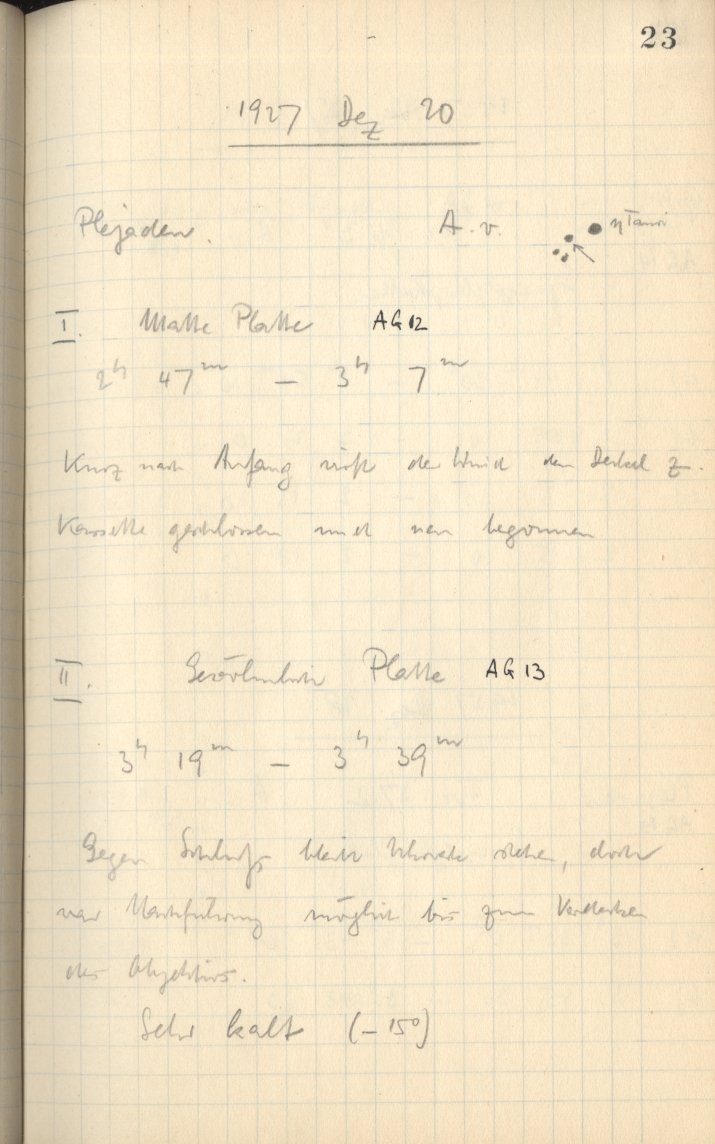 23
1927 Dez 20
Plejaden. A. v. η Tauri
I. Matte Platte AG 12
2h 47m – 3h 7m
Kurz nach Anfang reißt der Wind den Deckel z.
Kassette geschlossen und neu begonnen
II. Gewöhnliche Platte AG 13
3h 19m – 3h 39m
Gegen Schluß bleibt stehen, doch
war Nachführung möglich bis zum Verdecken
des Objektivs.
Sehr kalt (–15°)